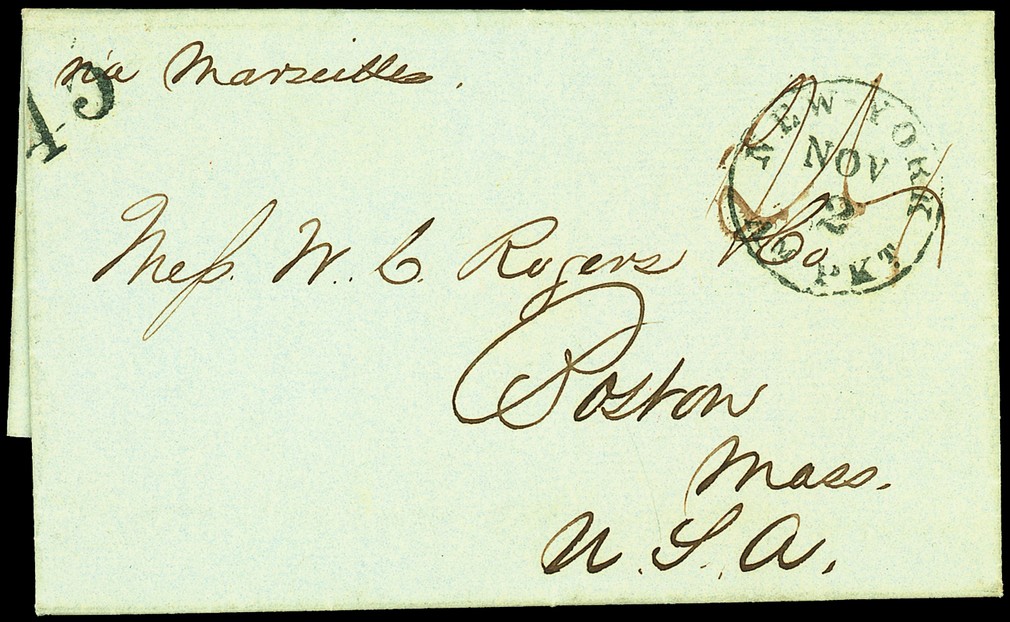 via Marseilles.
45
NEW-YORK
NOV
2
AM PKT
Mess. W. C. Rogers & Co
Boston
Mass.
U.S.A.